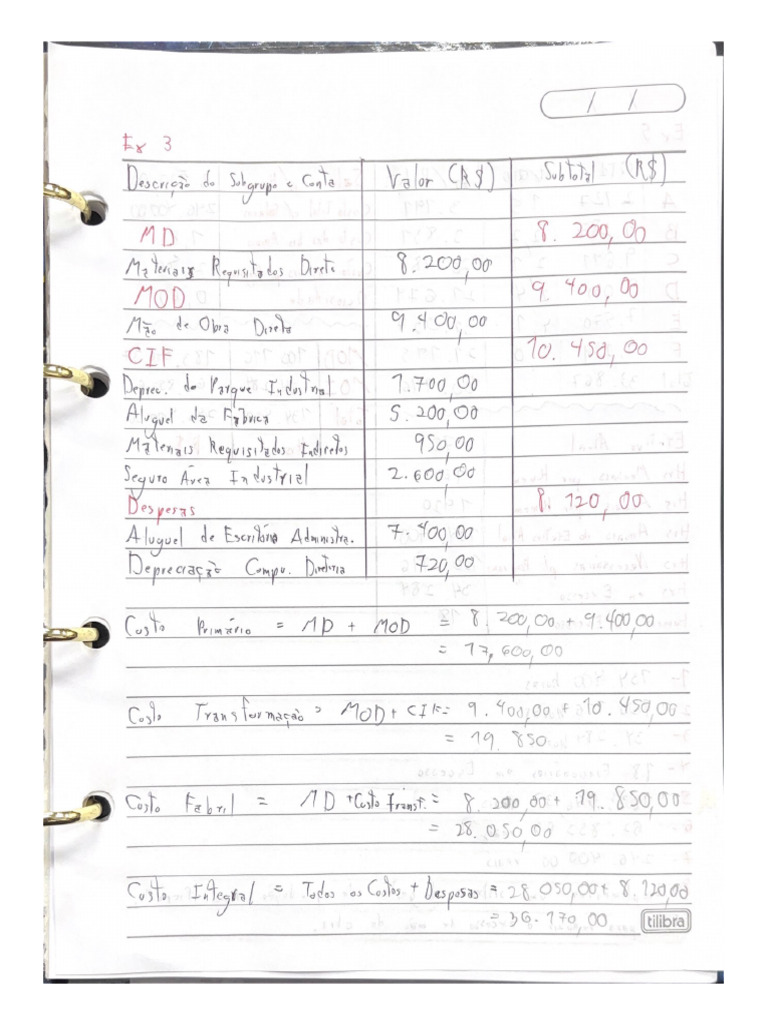 / /
Ex 3
Descrição do Subgrupo e Conta Valor (R$) Subtotal (R$)
MD 8.200,00
Materiais Requisitados Direto 8.200,00
MOD 9.400,00
Mão de Obra Direta 9.400,00
CIF 10.450,00
Deprec. do Parque Industrial 1.700,00
Aluguel da Fábrica 5.200,00
Materiais Requisitados Indiretos 950,00
Seguro Área Industrial 2.600,00
Despesas 8.120,00
Aluguel de Escritório Administra. 7.400,00
Depreciação Compu. Diretoria 720,00
Custo Primário = MD + MOD = 8.200,00 + 9.400,00
= 17,600,00
Custo Transformação = MOD + CIF = 9.400,00 + 10.450,00
= 19.850
Custo Fabril = MD + Custo Transf. = 8.200,00 + 19.850,00
= 28.050,00
Custo Integral = Todos os Custos + Despesas = 28.050,00 + 8.120,00
= 36.170,00
tilibra